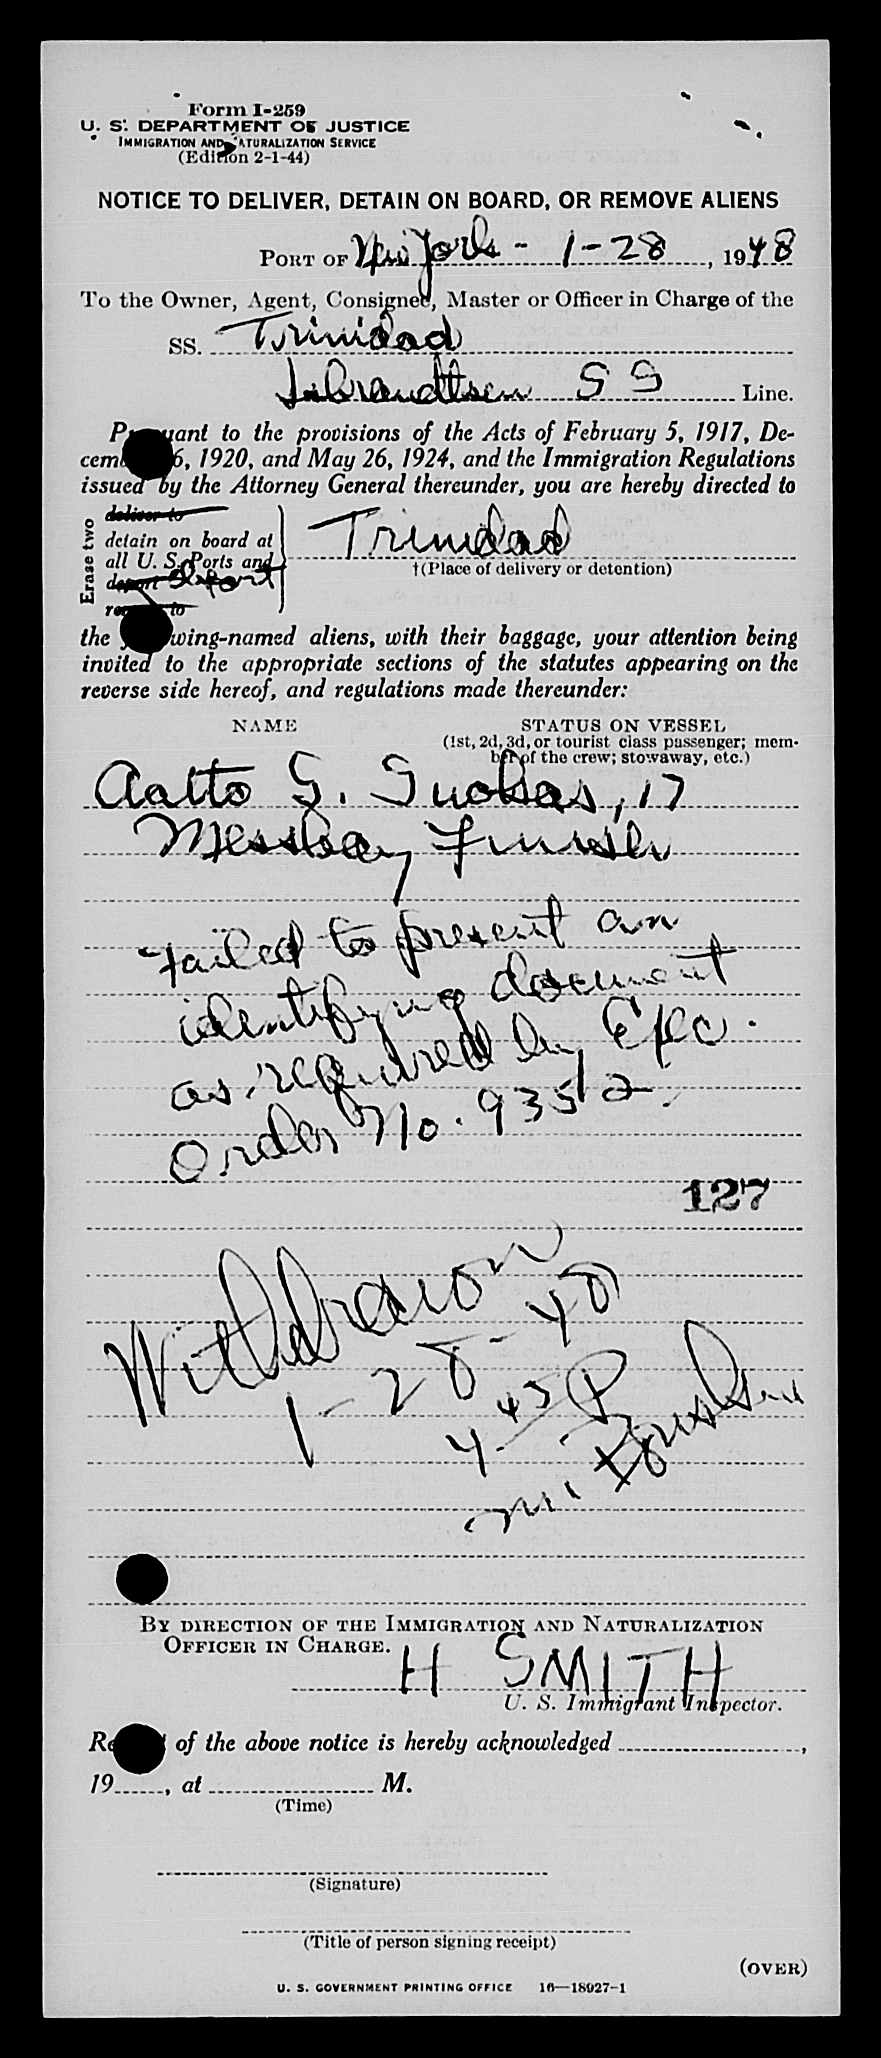 Form I-259
U. S. DEPARTMENT OF JUSTICE
IMMIGRATION AND NATURALIZATION SERVICE
(Edition 2-1-44)
NOTICE TO DELIVER, DETAIN ON BOARD, OR REMOVE ALIENS
PORT OF New York - 1-28, 1948
To the Owner, Agent, Consignee, Master or Officer in Charge of the
SS. Trinidad
Isbrandtsen S S Line.
Pursuant to the provisions of the Acts of February 5, 1917, De-
cember 26, 1920, and May 26, 1924, and the Immigration Regulations
issued by the Attorney General thereunder, you are hereby directed to
Erase two
deliver to
detain on board at
all U. S. Ports and
deport deport
remove to
Trinidad
†(Place of delivery or detention)
the following-named aliens, with their baggage, your attention being
invited to the appropriate sections of the statutes appearing on the
reverse side hereof, and regulations made thereunder:
NAME STATUS ON VESSEL
(1st, 2d, 3d, or tourist class passenger; mem-
ber of the crew; stowaway, etc.)
Aatto S. Suokas, 17
Messboy Finnish
Failed to present an
identifying document
as required by Exec.
Order No. 9352.
127
Withdrawn
1-28-48
4 45 P
m
BY DIRECTION OF THE IMMIGRATION AND NATURALIZATION
OFFICER IN CHARGE.
H SMITH
U. S. Immigrant Inspector.
Receipt of the above notice is hereby acknowledged ,
19 , at M.
(Time)
(Signature)
(Title of person signing receipt)
(OVER)
U. S. GOVERNMENT PRINTING OFFICE 16—18927-1